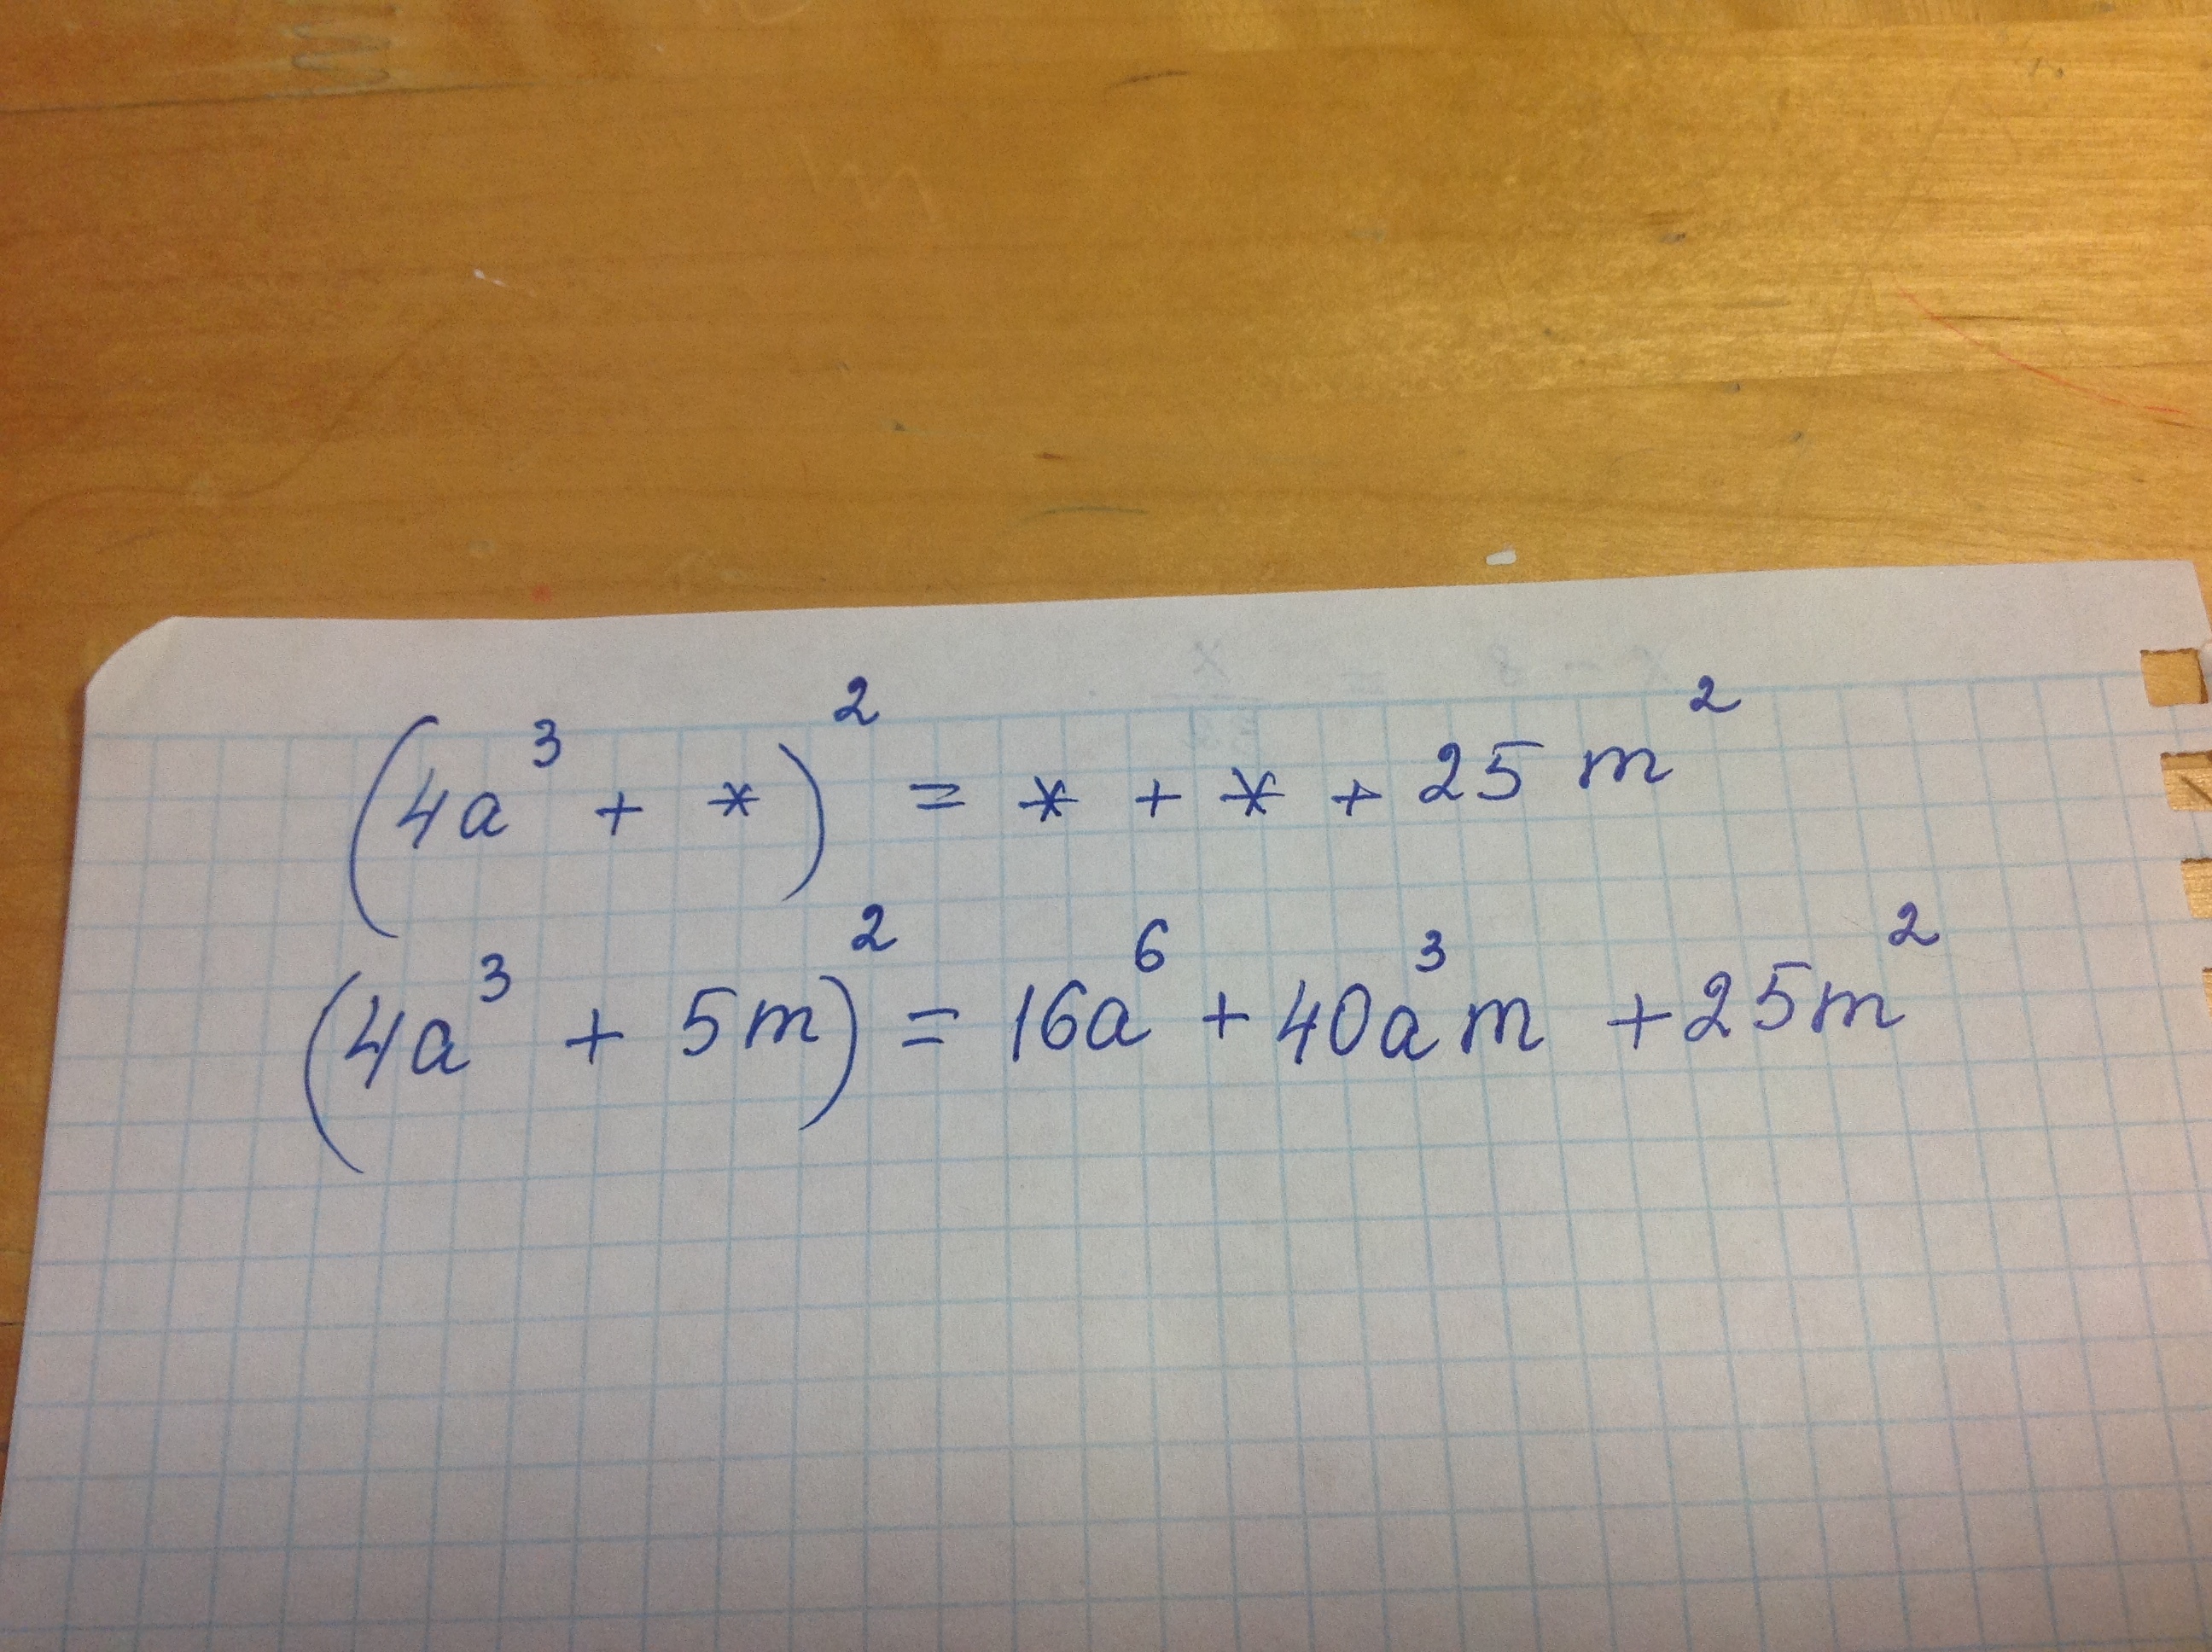 (4a³ + *)² = * + * + 25 m²
(4a³ + 5m)² = 16a⁶ + 40a³m + 25m²